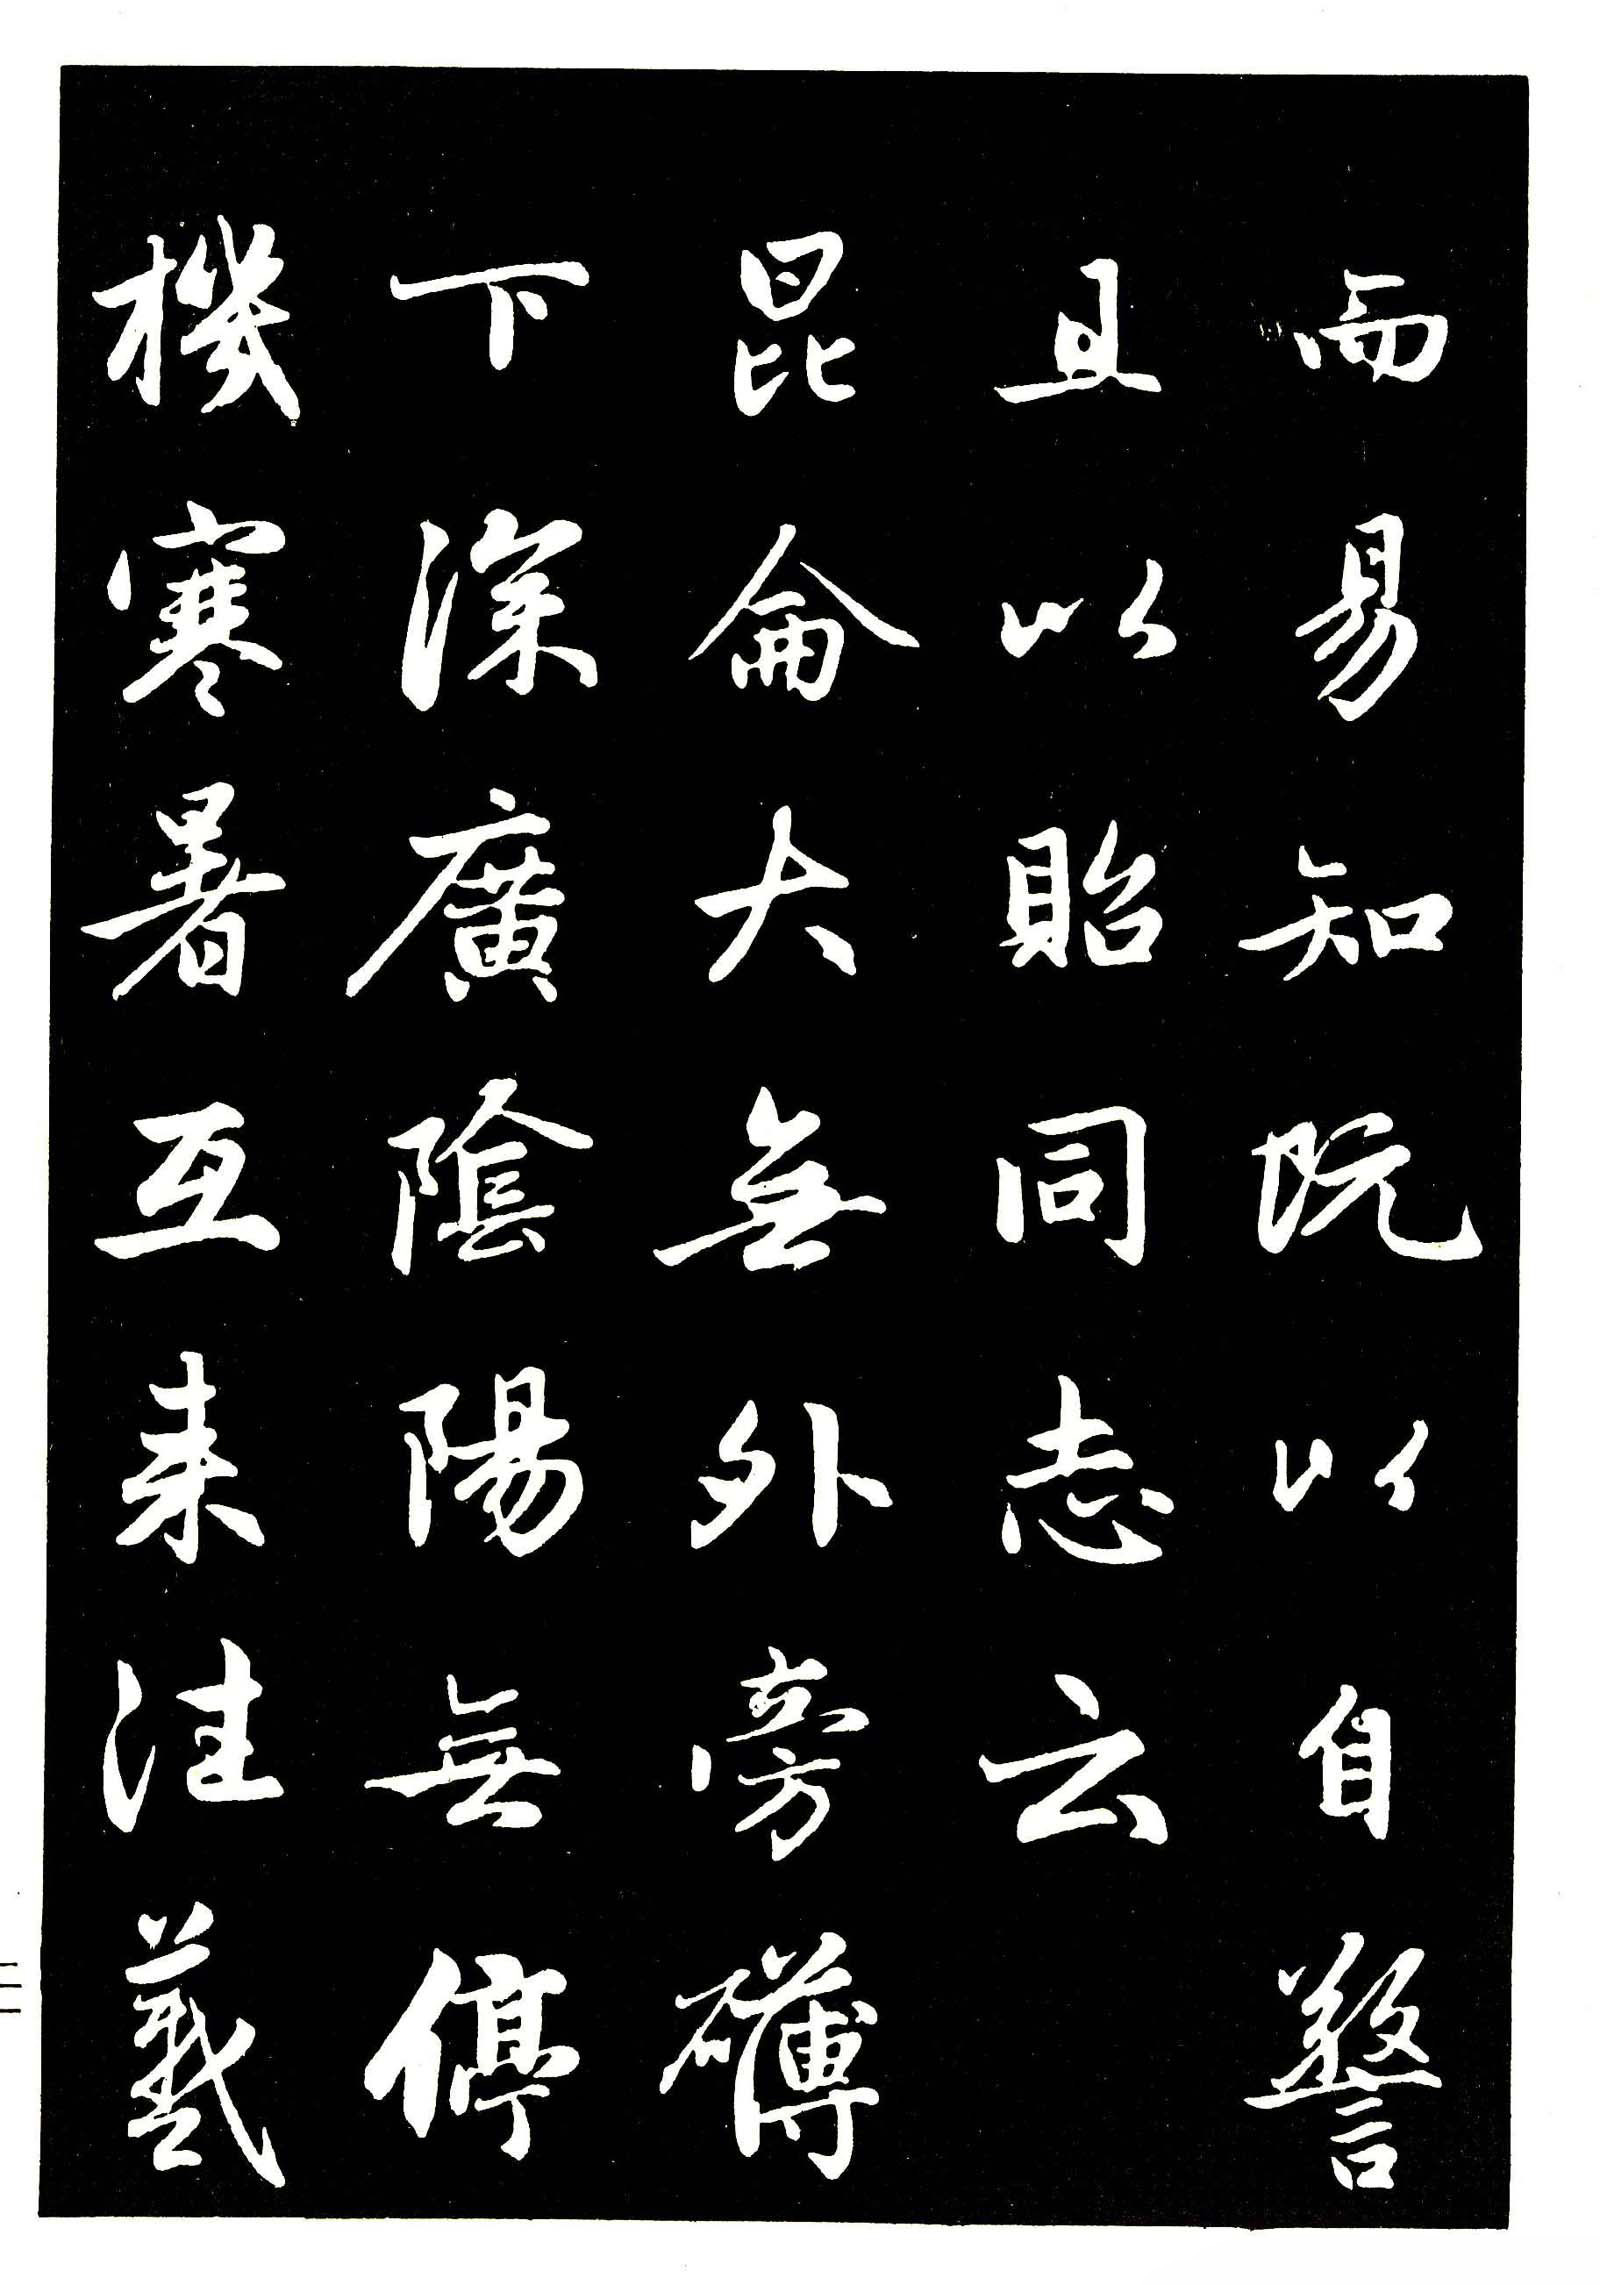 而易知既以自警
且以貽同志云
昆侖大無外旁礴
下深廣陰陽無停
機寒暑互來往羲
二二